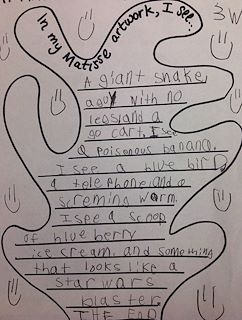 In my Matisse artwork, I see...
3W
A giant snake,
a guy with no
legs, and a
go cart. I see
a poisonous banana.
I see a blue bird,
a telephone, and a
screming worm.
I see a scoop
of blueberry
ice cream, and something
that looks like a
star wars
blaster.
THE END